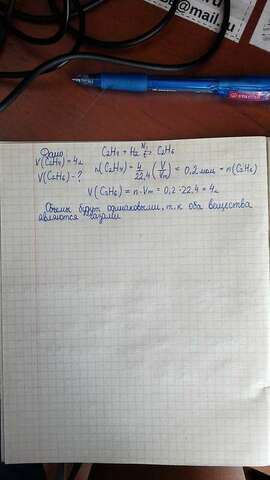 @mail.ru
Дано
V(C2H4) = 4л
V(C2H6) - ?
C2H4 + H2 Ni→ C2H6
n(C2H4) = 4/22,4 (V/Vm) = 0,2 моль = n(C2H6)
V(C2H6) = n · Vm = 0,2 · 22,4 = 4л
Объемы будут одинаковыми, т.к оба вещества
являются газами